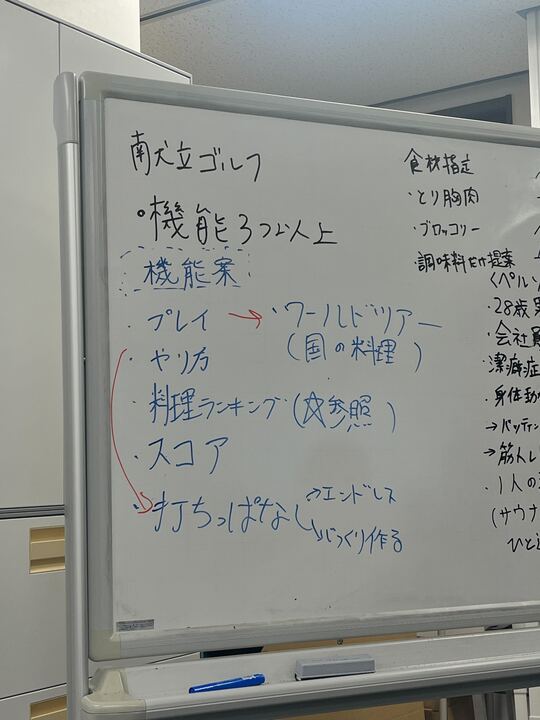 南犬立ゴルフ
・機能3つ以上
機能案
・プレイ → ・ワールドツアー
(国の料理)
・やり方
・料理ランキング(☆参照)
・スコア
・打ちっぱなし →エンドレス
→じっくり作る
食材指定
・とり胸肉
・ブロッコリー
・調味料だけ提案
・28歳
・会社員
潔癖症
・身体動
→バッティン
→筋トレ
・1人の
(サウナ
ひと